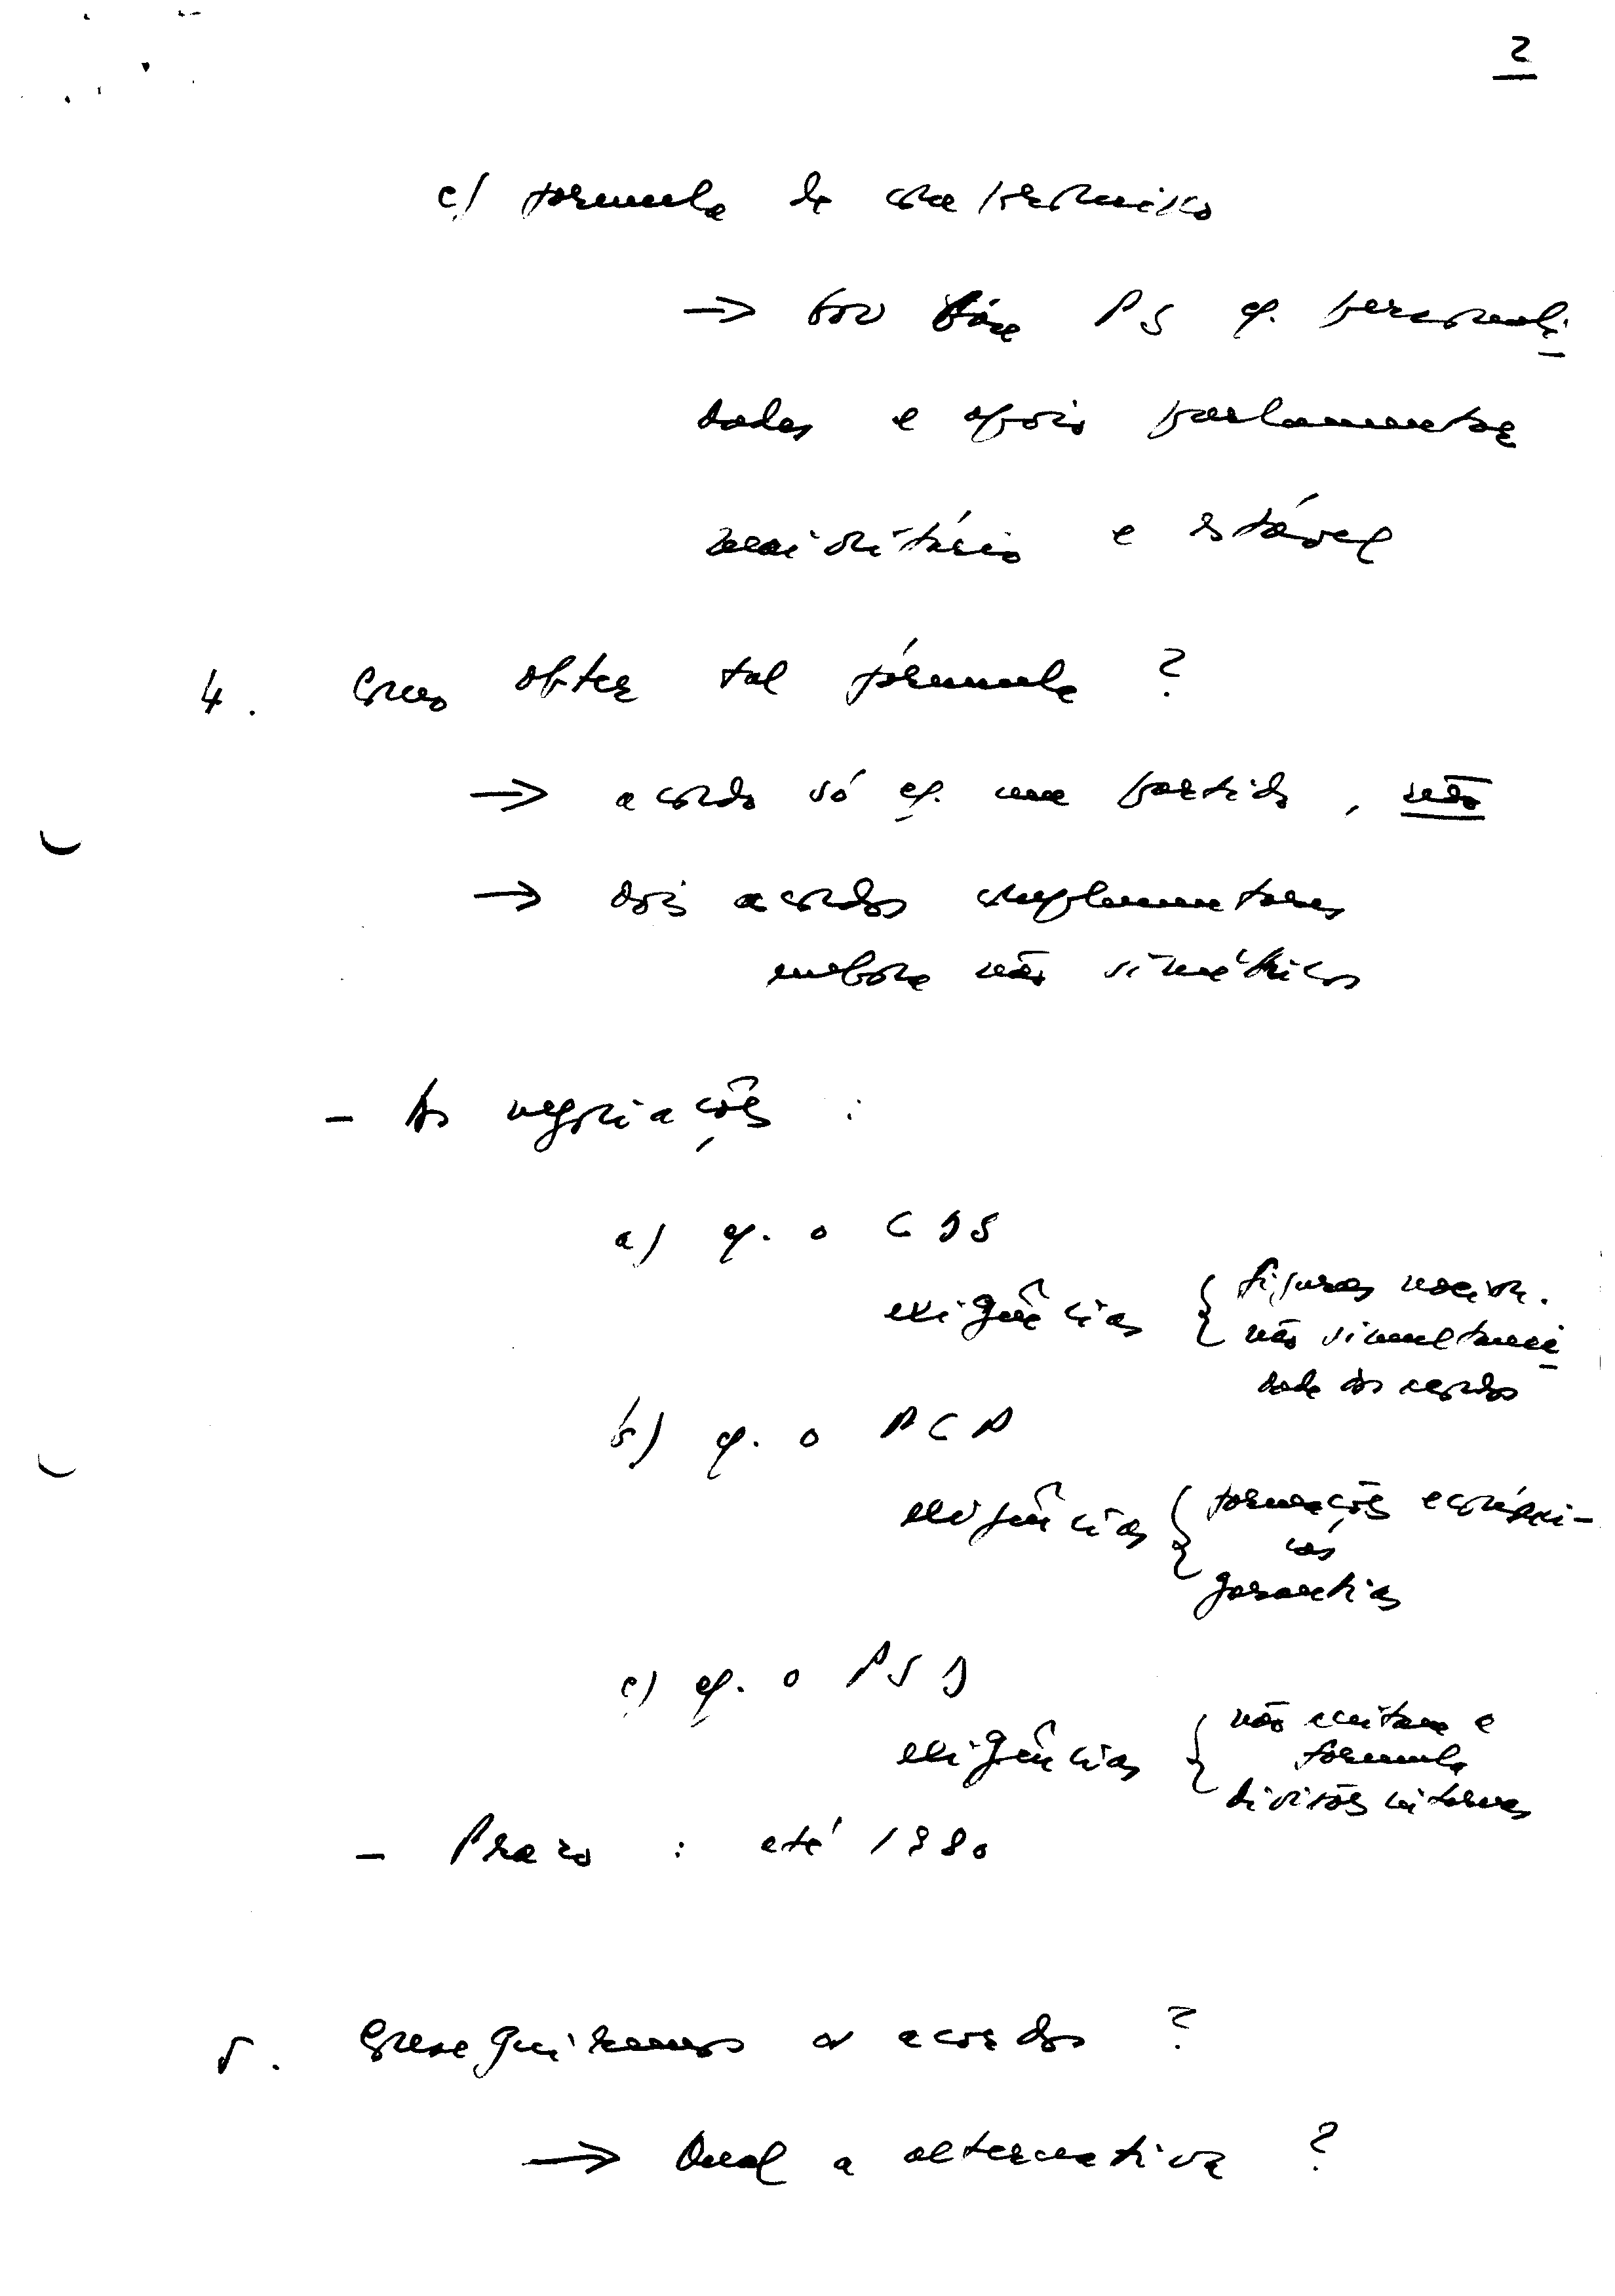 2
c) formula de compromisso
→ Gov base PS c/. personali-
dades e apoio parlamentar
maioritário e estável
4. Como obter tal fórmula ?
→ acordo só c/. um partido, não
→ dois acordos complementares
embora não simétricos
- As negociações :
a) c/. o CDS
exigências { figuras
não simultanei-
dade dos acordos
b) c/. o PCP
exigências { formações económi-
cas
garantias
c) c/. o PSD
exigências { não aceitam a
formula
divisões internas
- Prazo : até 1980
5. Conseguiremos os acordos ?
→ Qual a alternativa ?